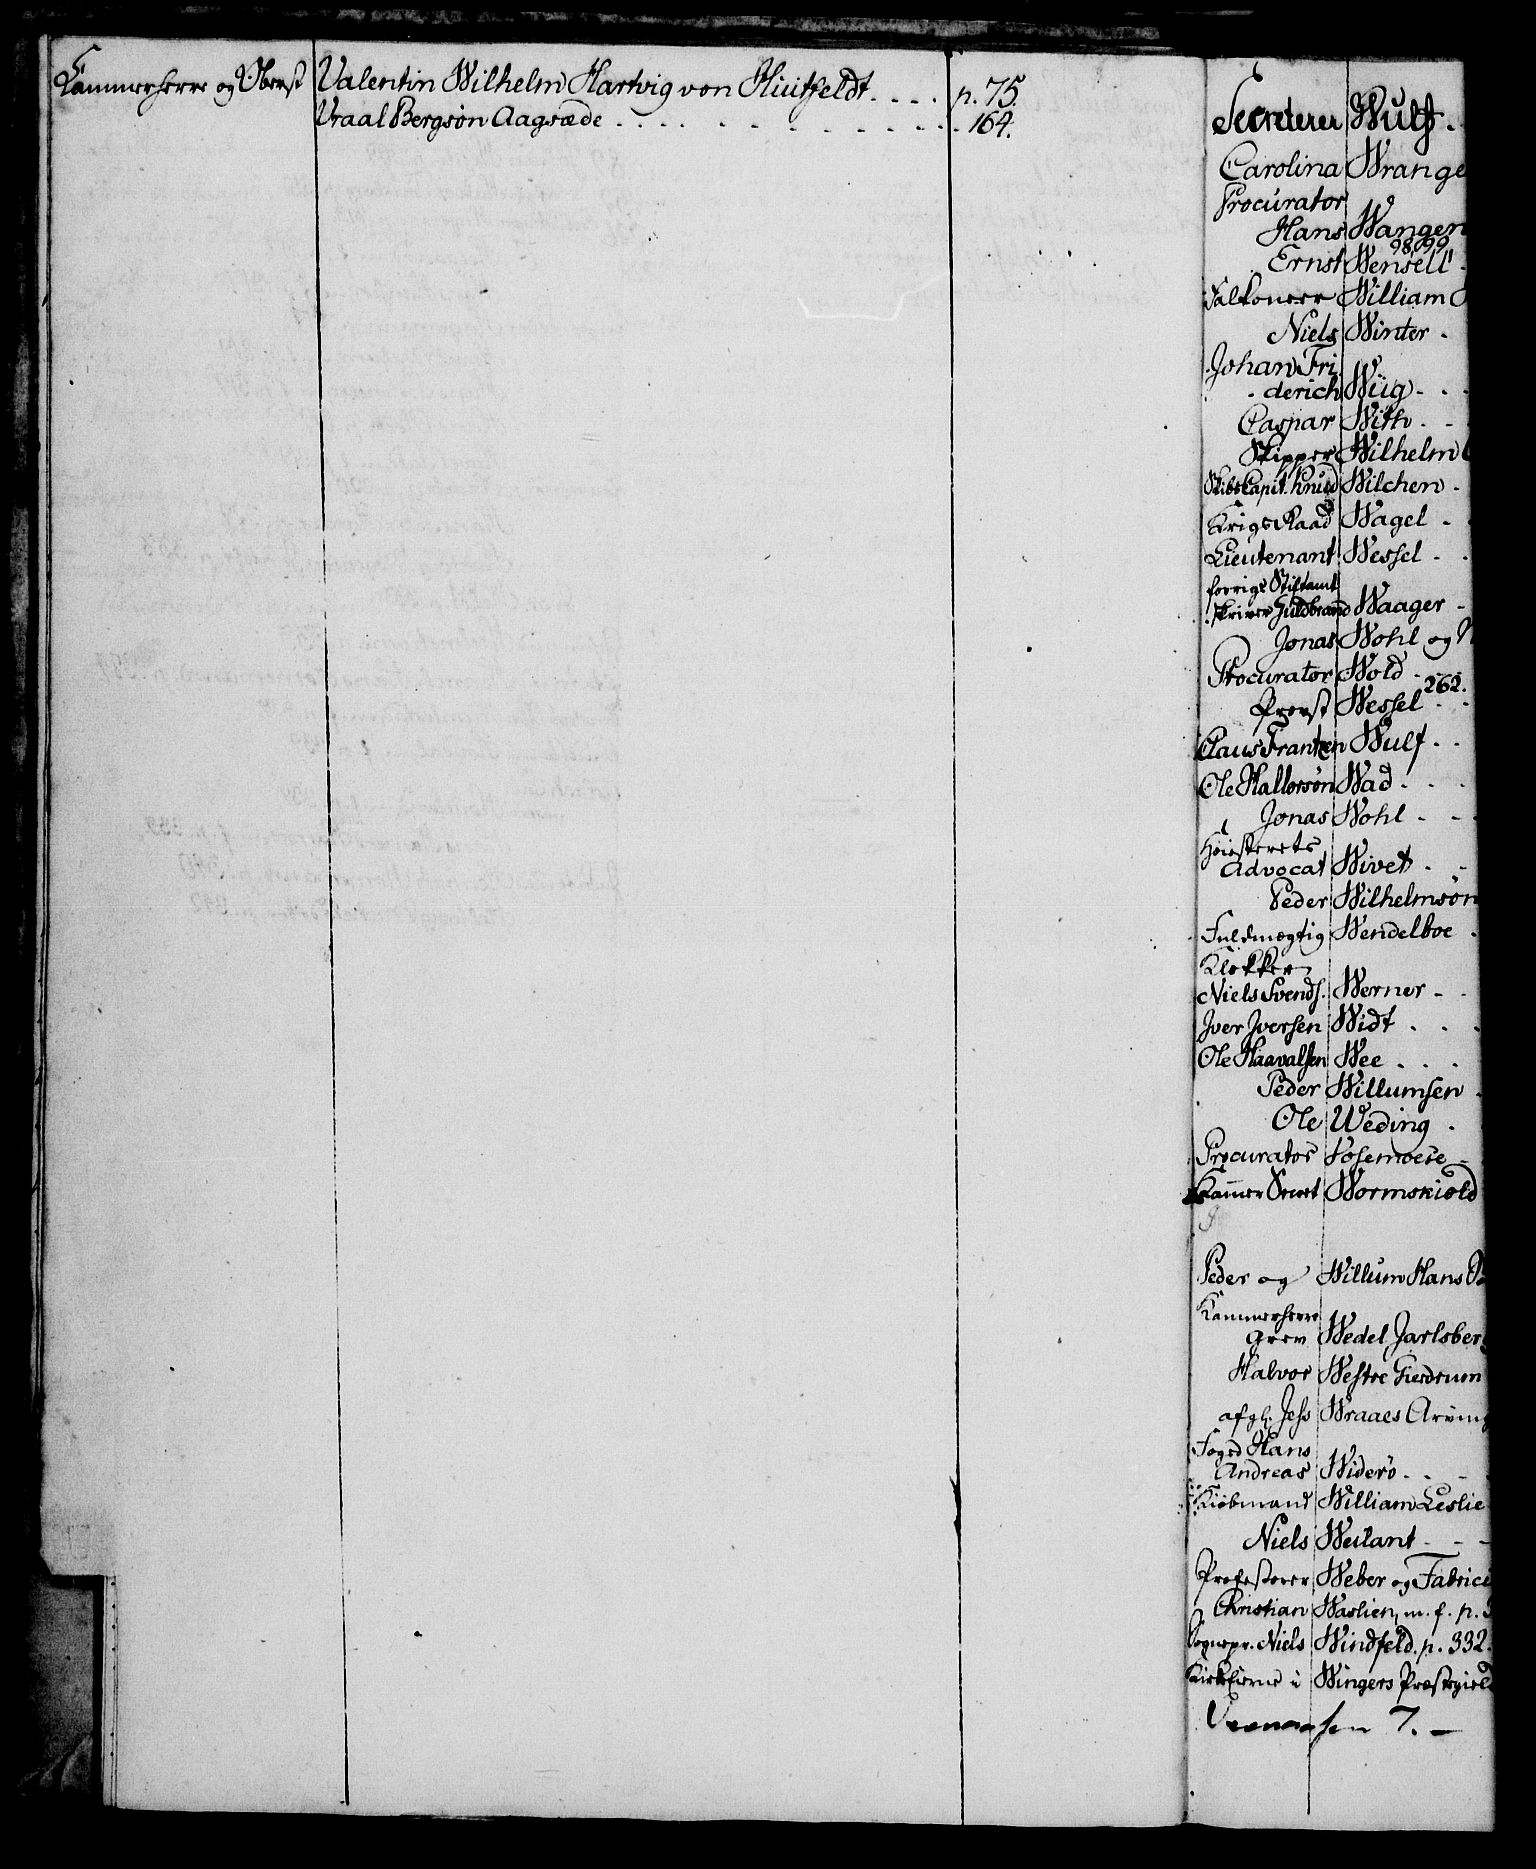 Kammerherre og Oberst Valentin Wilhelm Hartvig von Huitfeldt. . . . p. 75.
Vraal Bergsøn Aagsæde . . . . . . . . . . . . 164.
Secreterer Wulf.
Carolina Wrange
Procurator
Hans Wangen
98. 99
Ernst Wensell.
Falkoneer William
Niels Winter .
Johan Fri
derich Wiig . . .
Caspar With . . .
Skipper Wilhelm
Skibs Capit. Knud Wilchen .
Krigs Raad Wagel . .
Lieutenant Wessel . .
forrige Stiftamt
skriver Guldbrand Waager .
Jonas Wohl og
Procurator Wold .
262.
Provst Wessel . .
Claus Frantzen Wulf . .
Ole Hallorsøn Wad . . .
Jonas Wohl . . .
Høiesterets
Advocat Wivet . .
Peder Wilhelmsøn
Fuldmægtig Wendelboe .
Klokker
Niels Svends. Werner . .
Iver Iversen Widt . . .
Ole Haavalsen Wee . . .
Peder Willumsen .
Ole Weding .
Procurator Vosemoese .
Kammer Secret Wormskiold
Peder og Willum Hans
Kammerherre
Grev Wedel Jarlsberg
Halvor Westre Gierdrum
afg. Jess Wraaes Arving
Foged Hans
Andreas Widerø . . .
Kiøbmand William Leslie
Niels Weilant . . .
Professorer Weber og Fabrici
Christian Waslien, m. f. p.
Sognepr. Niels Windfeld. p. 332.
Kirkerne i Wingers Præstegield
7. —